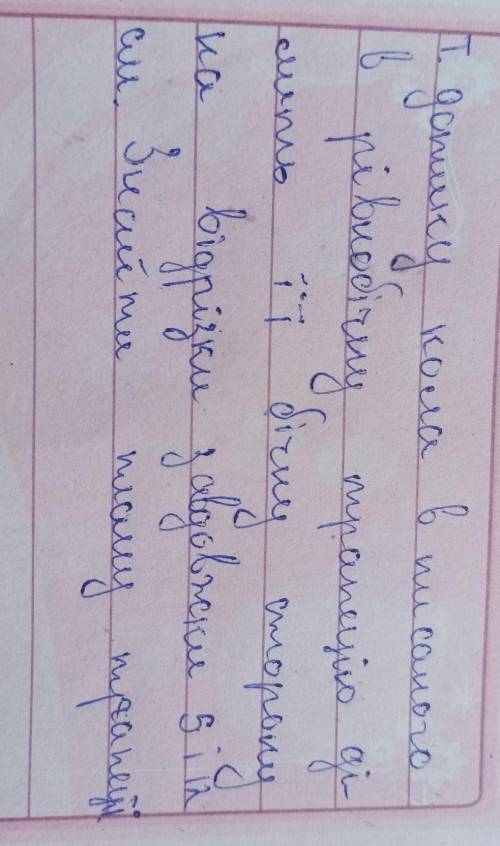 Т. дотику кола вписаного
в рівнобічну трапецію ді-
лить її бічну сторону
на відрізки завдовжки 5 і 12
см. Знайти площу трапеції